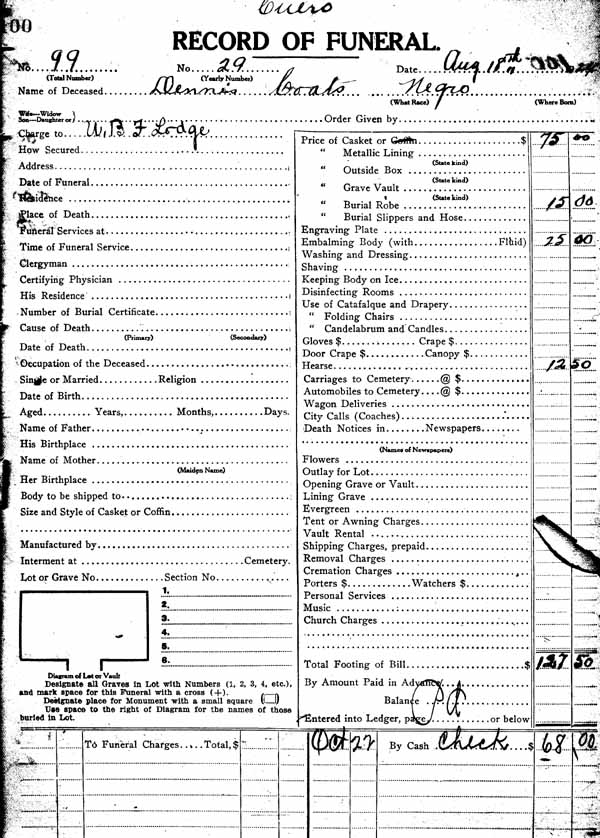 Cuero
00
RECORD OF FUNERAL.
No. 99 No. 29 Date Aug 18th
(Total Number) (Yearly Number)
Name of Deceased Dennis Coats Negro
(What Race) (Where Born)
Wife—Widow
Son—Daughter of) Order Given by
Charge to W. B. F Lodge
How Secured
Address
Date of Funeral
Residence
Place of Death
Funeral Services at
Time of Funeral Service
Clergyman
Certifying Physician
His Residence
Number of Burial Certificate
Cause of Death
(Primary) (Secondary)
Date of Death
Occupation of the Deceased
Single or Married Religion
Date of Birth
Aged Years, Months, Days.
Name of Father
His Birthplace
Name of Mother
(Maiden Name)
Her Birthplace
Body to be shipped to
Size and Style of Casket or Coffin
Manufactured by
Interment at Cemetery.
Lot or Grave No. Section No.
1.
2.
3.
4.
5.
6.
Diagram of Lot or Vault
Designate all Graves in Lot with Numbers (1, 2, 3, 4, etc.),
and mark space for this Funeral with a cross (+).
Designate place for Monument with a small square (□)
Use space to the right of Diagram for the names of those
buried in Lot.
Price of Casket or Coffin $ 75 00
" Metallic Lining
(State kind)
" Outside Box
(State kind)
" Grave Vault
(State kind)
" Burial Robe 15 00
" Burial Slippers and Hose
Engraving Plate
Embalming Body (with Fluid) 25 00
Washing and Dressing
Shaving
Keeping Body on Ice
Disinfecting Rooms
Use of Catafalque and Drapery
" Folding Chairs
" Candelabrum and Candles
Gloves $ Crape $
Door Crape $ Canopy $
Hearse 12 50
Carriages to Cemetery @ $
Automobiles to Cemetery @ $
Wagon Deliveries
City Calls (Coaches)
Death Notices in Newspapers
(Names of Newspapers)
Flowers
Outlay for Lot
Opening Grave or Vault
Lining Grave
Evergreen
Tent or Awning Charges
Vault Rental
Shipping Charges, prepaid
Removal Charges
Cremation Charges
Porters $ Watchers $
Personal Services
Music
Church Charges
Total Footing of Bill $ 127 50
By Amount Paid in Advance
Balance Pd
Entered into Ledger, page or below
To Funeral Charges Total, $ Oct 22 By Cash Check $ 68 00